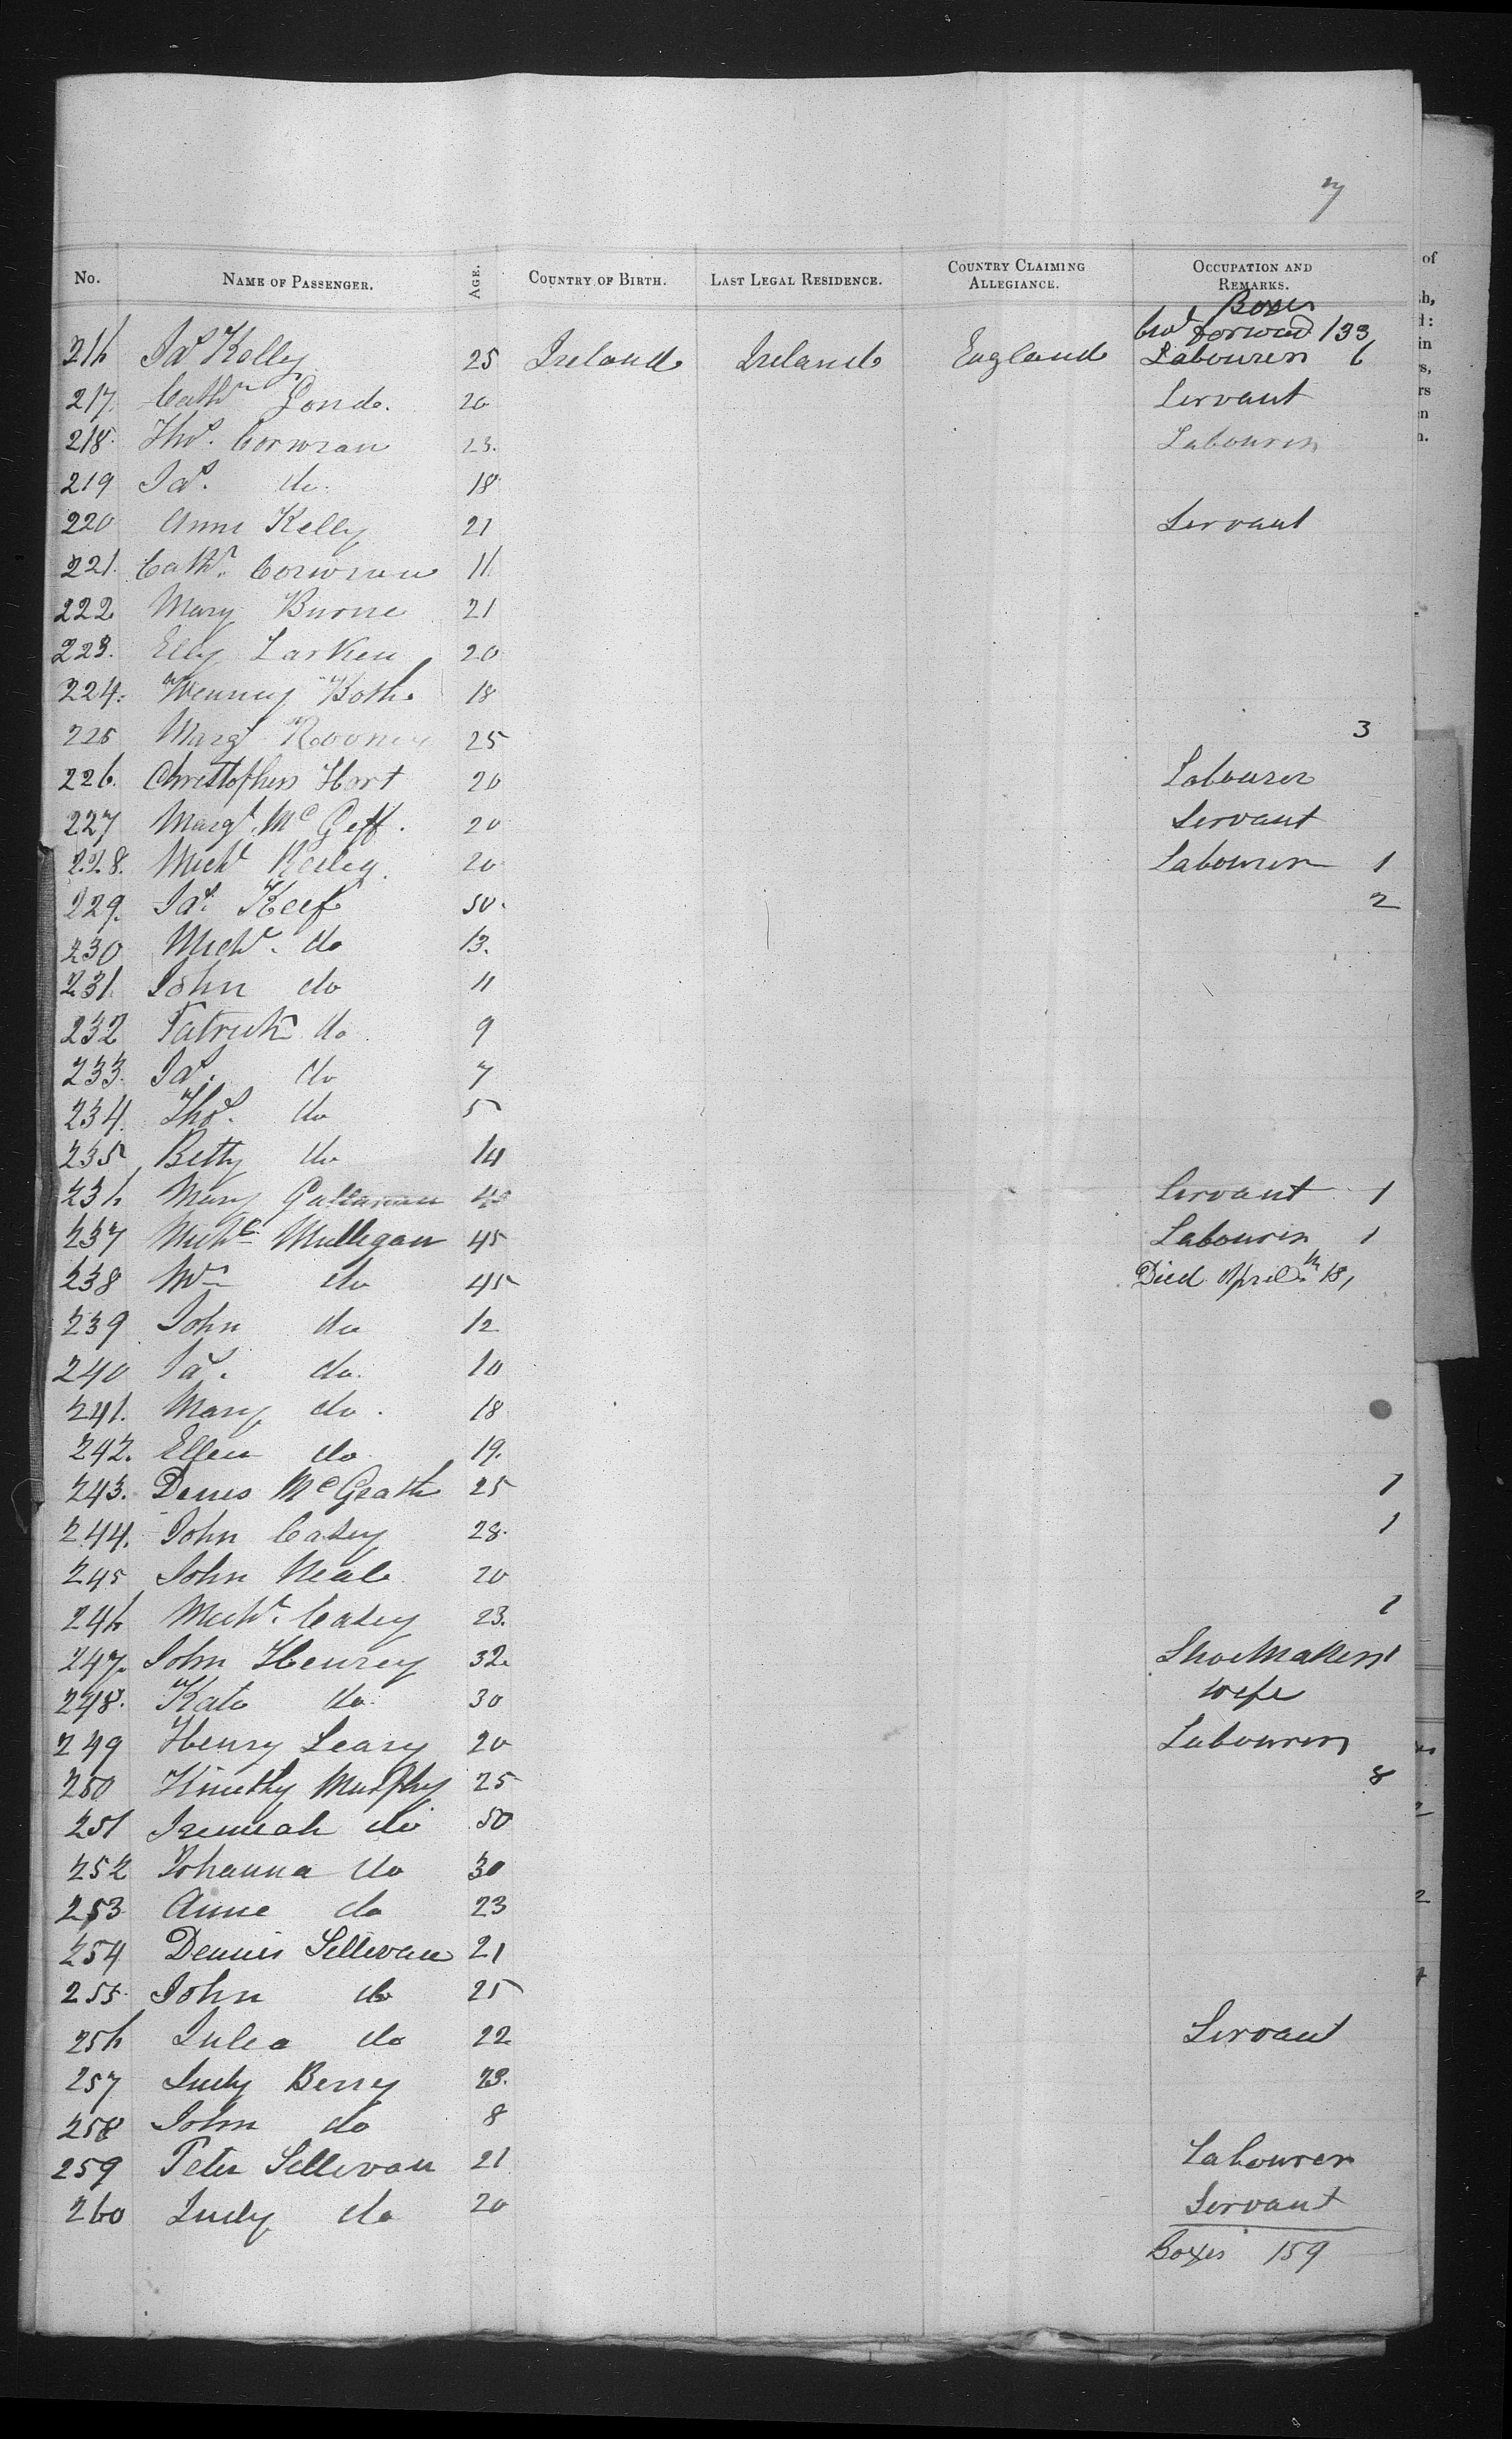 7
No. NAME OF PASSENGER. AGE. COUNTRY OF BIRTH. LAST LEGAL RESIDENCE. COUNTRY CLAIMING ALLEGIANCE. OCCUPATION AND REMARKS.
Boxes
forward 133
216 Jas Kelly 25 Ireland Ireland England Labourer 6
217. Cathn 20 Servant
218. Thos. Corwran 23. Labourer
219 Jas. do. 18
220 Anne Kelly 21 Servant
221. Cathn. Corwran 11
222 Mary Burne 21
223. Elly Larken 20
224. 18
225 Margt Rooney 25 3
226. Christopher Hart 20 Labourer
227 Margt. Mc Geff. 20 Servant
228. Michl 20 Labourer 1
229. Jas. Keef 50. 2
230 Michl. do 13.
231. John do 11
232 Patrick do 9
233. Jas. do 7
234. Thos. do 5
235 Betty do 14
236 Mary 40 Servant 1
237 Michl Mulligan 45 Labourer 1
238 do 45 Died April 18,
239 John do 12
240 Jas. do. 10
241. Mary do. 18
242. Ellen do 19.
243. Denis McGrath 25 1
244. John Casey 28. 1
245 John Neale 20
246 Michl. Casey 23. 1
247. John Henrey 32. ShoeMaker 1
248. Kate do 30 wife
249 Henry Leary 20 Labourer
250 Timothy Murphy 25 8
251 Jremeah do 50
252 Johanna do 30
253 Anne do 23
254 Dennis Sellivan 21
255. John do 25
256 Julea do 22 Servant
257 Judy Berry 23.
258 John do 8
259 Peter Sellivan 21 Labourer
260 Judy do 20 Servant
Boxes 159